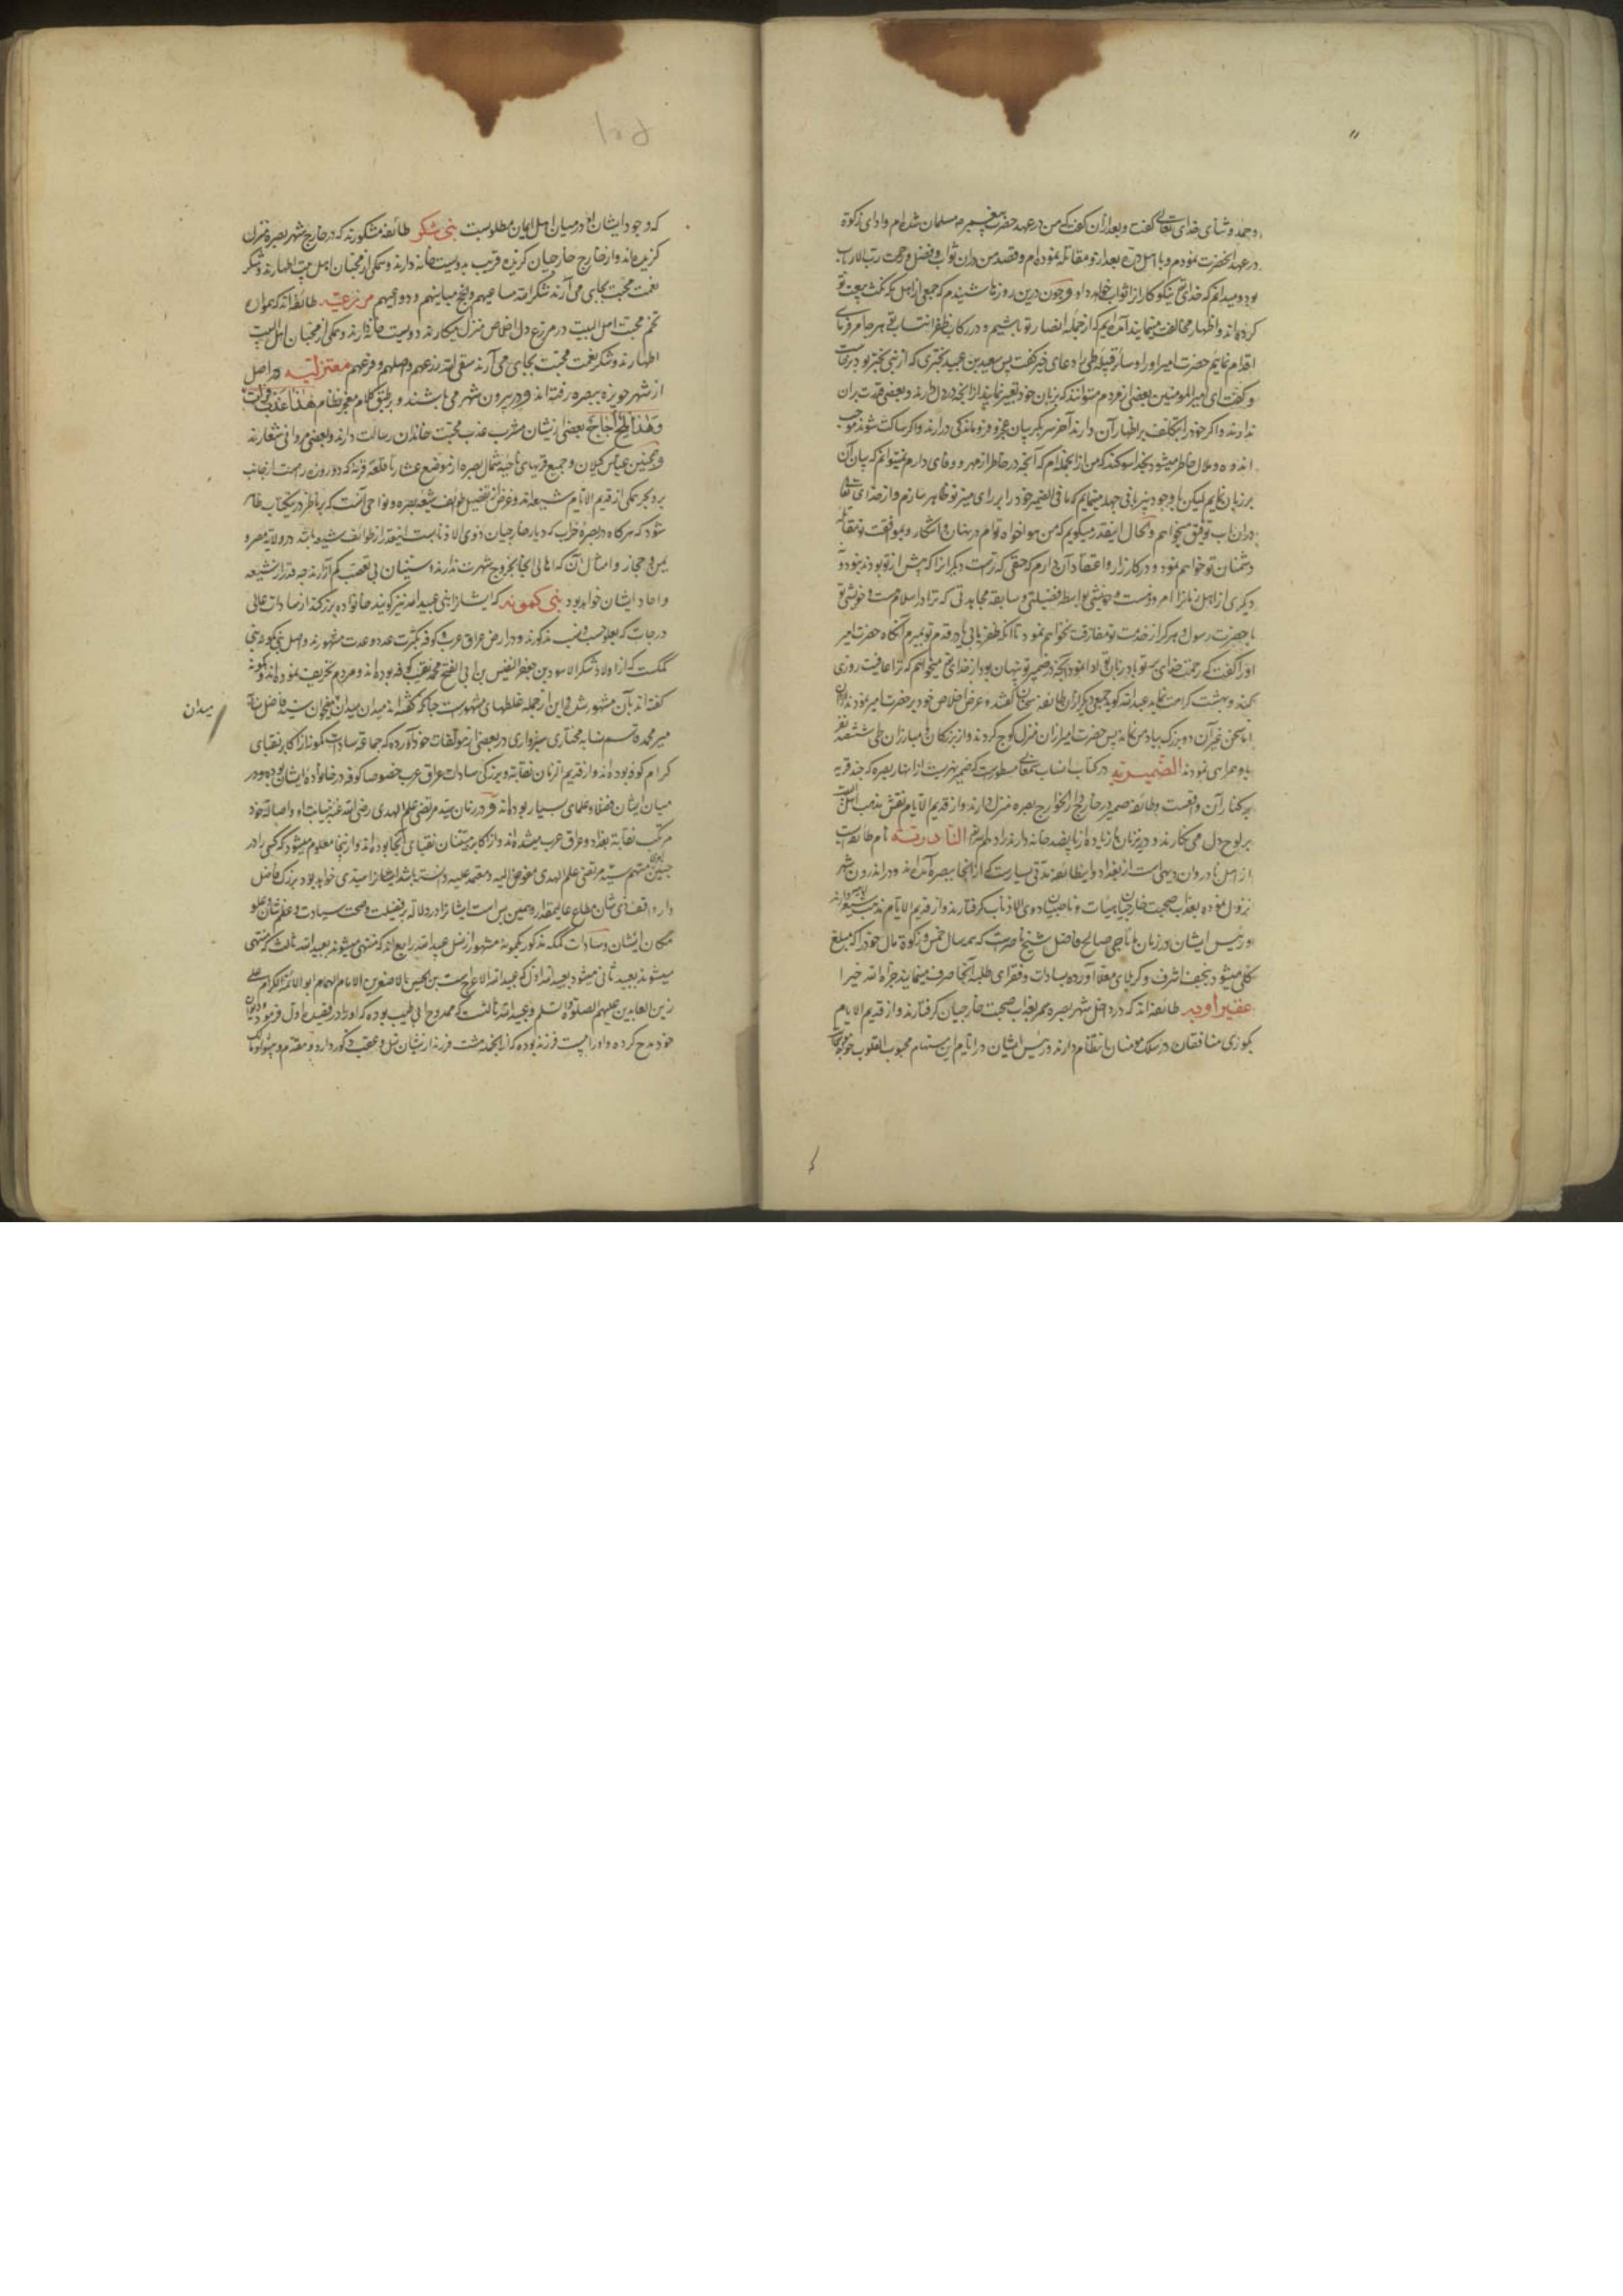 و حمد و ثنای خدای تعالی گفت و بعد از آن گفت که من در عهد حضرت پیغمبر مسلمان شده‌ام و ادای زکوة
در عهد آنحضرت نمودم و با اهل رده بعد از تو مقاتله نموده‌ام و قصد من دران ثواب و فضل و رحمت رب الارباب
بود و میدانم که خدای نیکوکار از ثواب خواهد داد و چون درین روزها شنیدم که جمعی از اهل مکه نکث بیعت تو
کرده‌اند و اظهار مخالفت مینمایند آمده‌ایم که از جمله انصار تو باشیم و در رکاب ظفر انتساب تو بهر چه امر فرمائی
اقدام نمایم حضرت امیر او را و سایر قبیله طی را دعای خیر گفت پس سعید بن عبید بختری که از بنی بختر بود برخاست
و گفت ای امیرالمومنین بعضی از مردم میتوانند که بزبان خود تعبیر نمایند از آنچه در دل دارند و بعضی قدرت بران
ندارند و اگر خود را بتکلف بر اظهار آن دارند آخر سر بگریبان عجز و فروماندگی درارند و اگر ساکت شوند موجب
اندوه و ملال خاطر میشود بخدا سوگند که من از انجمله‌ام که آنچه در خاطر از مهر و وفای دارم نمیتوانم که بیان آن
بر زبان نمایم لیکن با وجود بی‌زبانی جهد مینمایم که ما فی الضمیر خود را بر رای منیر تو ظاهر سازم و از خدای تعالی
دران باب توفیق میخواهم و الحال اینقدر میگویم که من هواخواه توام در پنهان و آشکار و بموافقت تو مقاتله
دشمنان تو خواهم نمود و در کارزار و اعتقاد آن دارم که حقی که تراست دیگرانرا که پیش از تو بودند نبود و
دیگری از اهل زمانرا امروز نیست و خویشی بواسطه فضیلتی و سابقه مجاهدتی که ترا در اسلام هست و خویشی تو
با حضرت رسول و هرگز از خدمت تو مفارقت نخواهم نمود تا آنکه ظفر یابی یا در قدم تو بمیرم آنگاه حضرت امیر
او را گفت که رحمت خدای بر تو باد زبان تو ادا نمود آنچه در ضمیر تو پنهان بود از خدای میخواهم که ترا عافیت روزی
کند و بهشت کرامت نماید عبدالله گوید جمعی دیگر از آن طائفه سخنان گفتند و عرض اخلاص خود بر حضرت امیر نمودند
اما سخن غیر آن دو بزرگ بیاد من نمانده پس حضرت امیر از آن منزل کوچ کردند و از بزرگان و مبارزان طی ششصد نفر
با او همراهی نمودند الضمیریه در کتاب انساب سمعانی مسطورست که ضمیر نهریست از انهار بصره که چند قریه
بر کنار آن واقعست و طائفه ضمیر در خارج الخوارج بصره منزل دارند و از قدیم الایام نقش مذهب اهل البیت
بر لوح دل می‌نگارند و درین زمان ما زیاده از پانصد خانه دارند النادرتیه نام طائفه‌ایست
از اهل نادروان دیهی است از بغداد و این طائفه مدتی بسیارست که از آنجا ببصره آمده‌اند و در اندرون شهر
نزول نموده بعذاب صحبت خارجیان و ناصبیان ذوی الاذناب گرفتارند و از قدیم الایام مذهب شیعه دارند
و رئیس ایشان در زمان ما حاجی صالح فاضل شیخ ناصرست که همه سال خمس و زکوة مال خود را که مبلغ
کلی میشود بنجف اشرف و کربلای معلا آورده بسادات و فقرای طلبه آنجا صرف مینمایند جزاه الله خیرا
عفیراویه طائفه‌اند که در داخل شهر بصره هم بعذاب صحبت خارجیان گرفتارند و از قدیم الایام
بکوری منافقان در سلک مومنان انتظام دارند و رئیس ایشان در ایام این مستهام محبوب القلوب خواجه
که وجود ایشان در میان اهل ایمان مطلوبست بنی شکر طائفه مشکورند که در خارج شهر بصره منزل
گزیده‌اند و از خارج خارجیان گزیده قریب بدویست خانه دارند و همگی از محبان اهل بیت اطهارند و شکر
نعمت محبت بجای می‌آرند شکر الله مساعیهم و انجح میامنهم و دواعیهم مزرعیه طائفه‌اند که همواره
تخم محبت اهل البیت در مزرع دل اخلاص منزل میکارند دویست خانه دارند و همگی از محبان اهل البیت
اطهارند و شکر نعمت محبت بجای می‌آرند سقی الله زرعهم و اصلهم و فرعهم معتزلیه در اصل
از شهر حویزه ببصره رفته‌اند و در بیرون شهر می‌باشند و بر طبق کلام معجز نظام هذا عذب فرات
و هذا ملح اجاج بعضی ازیشان مشرب عذب محبت خاندان رسالت دارند و بعضی مروانی شعارند
و همچنین عباس کیلان و جمیع قریهای ناحیه شمال بصره از موضع عشار تا قلعه قرنه که دو روزه راهست از جانب
بر و بحر همگی از قدیم الایام شیعه‌اند و غرض از تفصیل طوائف شیعه بصره و نواحی آنست که بر ناظر درین کتاب ظاهر
شود که هرگاه در بصره خراب که دیار خارجیان ذوی الاذنابست اینقدر از طوائف شیعه باشد در ولایت مصر و
یمن و حجاز و امثال آن که اهالی آنجا بخروج شهرت ندارند و سنیان بی تعصب کم آزارند چه قدر از شیعه
و احاد ایشان خواهد بود بنی کمونه که ایشانرا بنی عبیدالله نیز گویند خانواده بزرگند از سادات عالی
درجات که بعلو حسب و نسب مذکورند و در ارض عراق عرب و کوفه بکثرت عدد و عدت مشهورند و اصل بنی کمونه بنی
کمکمت که از اولاد شکر الاسود بن جعفر النفیس بن ابی الفتح محمد نقیب کوفه بوده‌اند و مردم تحریف نموده‌اند و کمونه
گفته‌اند بآن مشهور شده و این از جمله غلطهای مشهورست چنانکه گفته‌اند میدان سید فاضل نسابه
میر محمد قاسم نسابه مختاری سبزواری در بعضی از مولفات خود آورده که جماعه سادات کمونه از اکابر نقبای
کرام کوفه بوده‌اند و از قدیم الزمان نقابت و بزرگی سادات عراق عرب خصوصا کوفه در خانواده ایشان بوده و در
میان ایشان فضلا و علمای بسیار بوده‌اند و در زمان سید مرتضی علم الهدی رضی الله عنه بنیابت او و اصالة خود
مرتکب نقابت بغداد و عراق عرب میشده‌اند و از اکابر متعینان نقبای آنجا بوده‌اند و ازینجا معلوم میشود که کسی را در
سید مرتضی علم الهدی مفوض الیه و معتمد علیه دانسته باشد امتیازی خواهد بود بزرگ فاضل
ذی شان مطاع عالیمقدار و همین بس است ایشانرا در دلالت بر فضیلت و صحت سیادت و عظم شان و علو
مکان ایشان و سادات کمکمه مذکور بکمونه مشهور از نسل عبیدالله رابع‌اند که منتهی میشوند بعبیدالله ثالث که منتهی
میشوند بعبید ثانی میشود بعبیدالله اول که عبیدالله الاعرج است بن الحسین الاصغر بن الامام الهمام ابو الائمة الکرام علی
زین العابدین علیهم الصلوة و السلام و عبیدالله ثالثست که ممدوح ابی طیب بوده که او را در قصیده اول دیوان
خود مدح کرده و او را بیست فرزند بوده که از آنجمله هشت فرزند ازیشان نسل و عقب مذکور دارد و مقدم
میدان